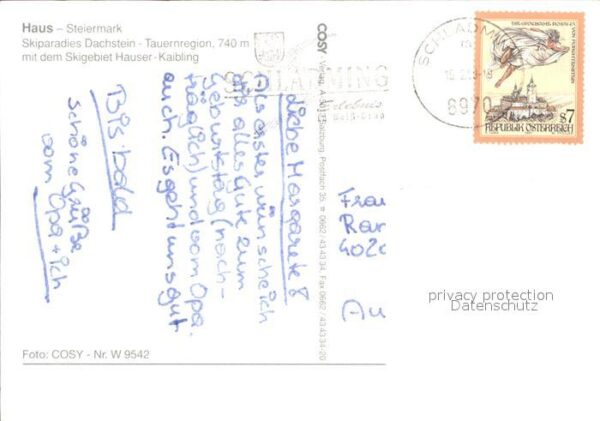 Haus – Steiermark
Skiparadies Dachstein - Tauernregion, 740 m
mit dem Skigebiet Hauser-Kaibling
Liebe Margarete!
Als erster wünsche ich
dir alles Gute zum
Geburtstag (nach-
träglich) und vom Opa
auch. Es geht uns gut.
Bis bald
schöne Grüße
vom Opa + ich
Foto: COSY - Nr. W 9542
COSY
Verlag, A-5021 Salzburg, Postfach 35, ☎ 0662/43 43 34, Fax 0662/43 43 34-20
SCHLADMING
SCHLADMING
8970
s7
REPUBLIK ÖSTERREICH
Frau
402
Au
privacy protection
Datenschutz